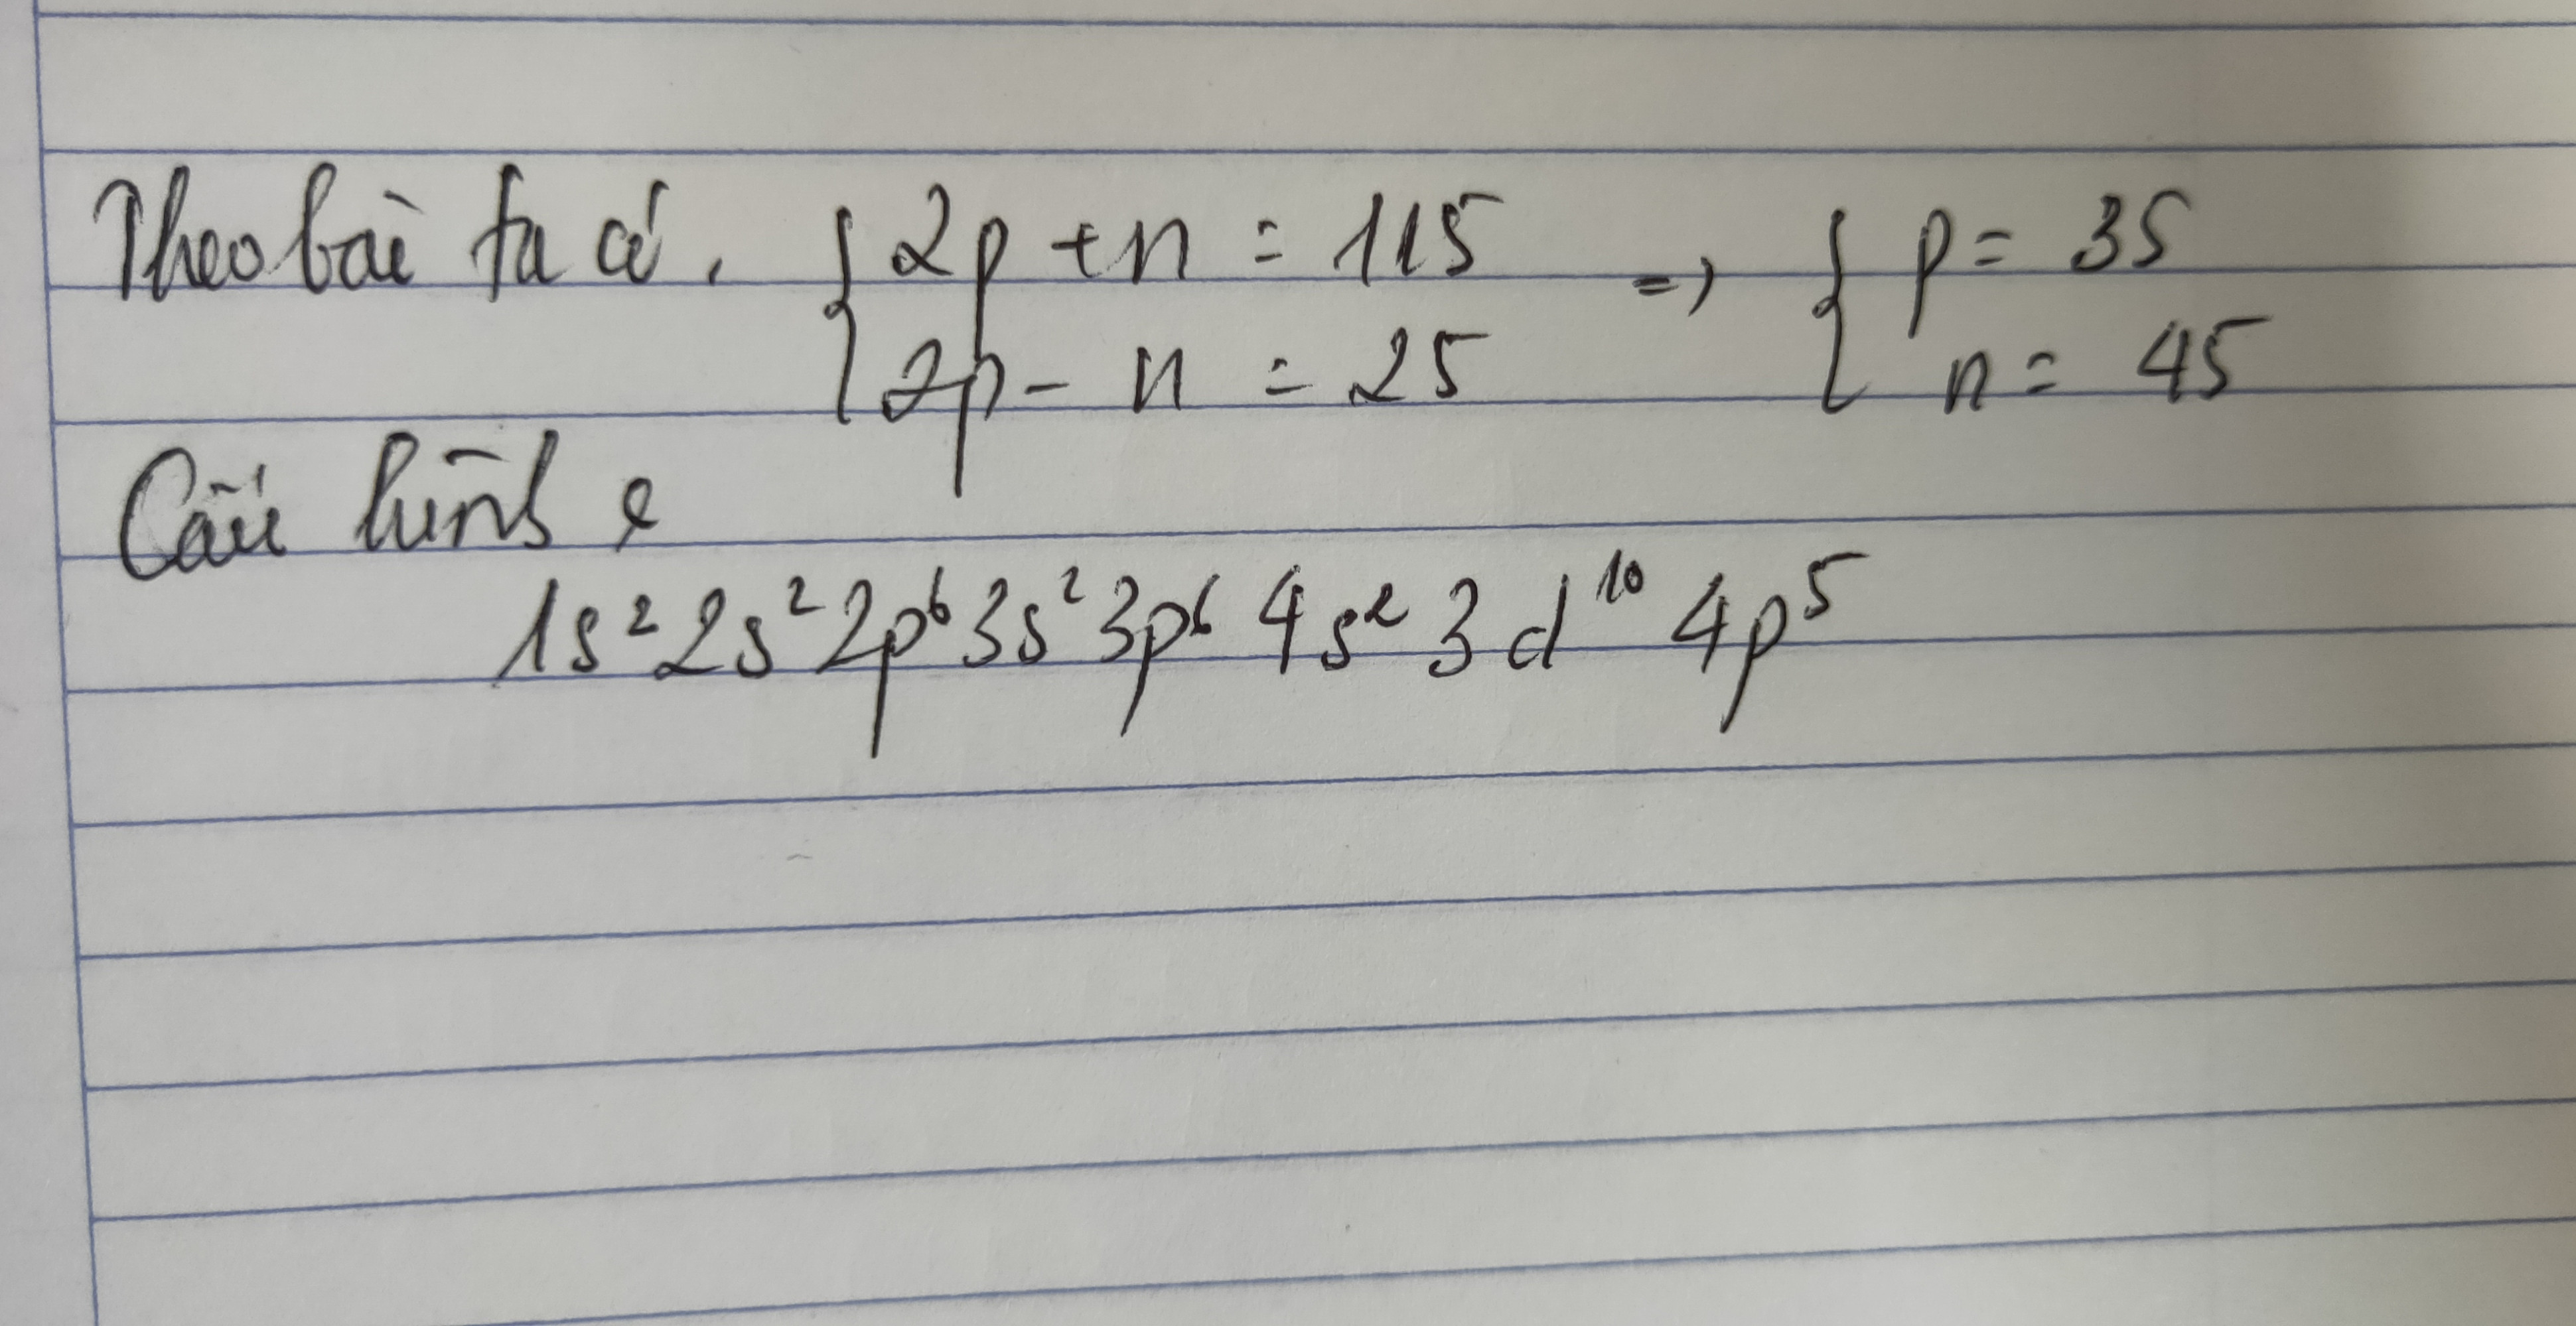 Theo bài ta có. { 2p + n = 115 => { p = 35
2p - n = 25 n = 45
Cấu hình e
1s² 2s² 2p⁶ 3s² 3p⁶ 4s² 3d¹⁰ 4p⁵